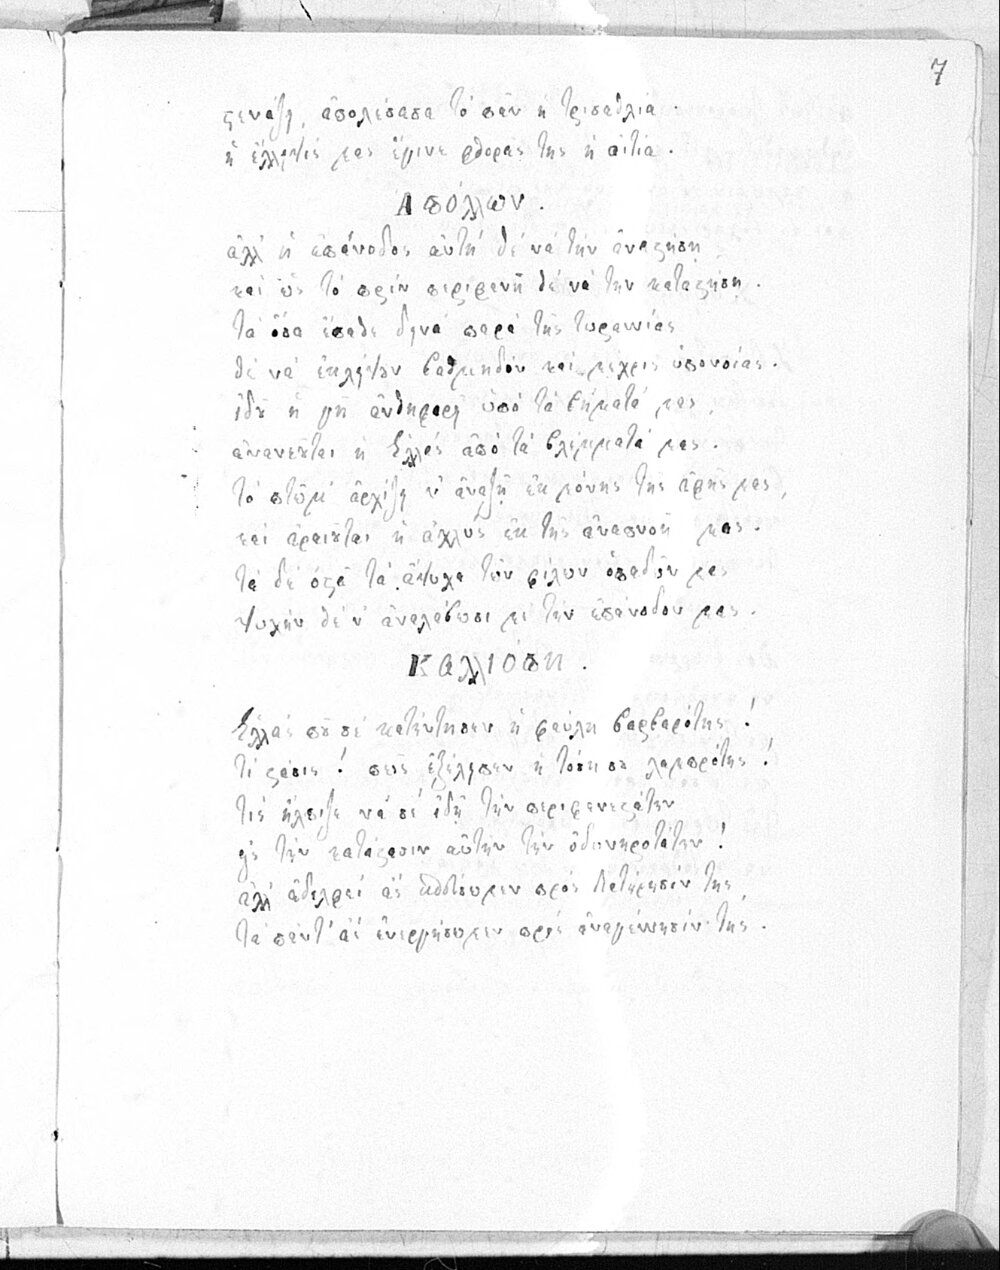 7
στενάζῃ, ἀπολέσασα τὸ πᾶν ἡ τρισαθλία
ἡ ἔλλειψίς μας ἔγινε φθορᾶς της ἡ αἰτία.
Ἀπόλλων.
ἀλλ' ἡ ἐπάνοδος αὐτὴ θὲ νὰ τὴν ἀναστήσῃ
καὶ ὡς τὸ πρὶν περιφανῆ θὲ νὰ τὴν καταστήσῃ.
Τὰ ὅσα ἔπαθε δεινὰ παρὰ τῆς τυραννίας
θὲ νὰ ἐκλείψουν βαθμηδὸν καὶ μέχρις ὑπονοίας.
ἰδοὺ ἡ γῆ ἀνθηφορεῖ ὑπὸ τὰ βήματά μας,
ἀνανεοῦται ἡ Ἑλλὰς ἀπὸ τὰ βλέμματά μας.
τὸ πτῶμ' ἀρχίζει ν' ἀναζῇ ἐκ μόνης τῆς ἀφῆς μας,
καὶ ἀραιοῦται ἡ ἀχλὺς ἐκ τῆς ἀναπνοῆς μας.
τὰ δὲ ὀστᾶ τὰ ἄψυχα τῶν φίλων ὀπαδῶν μας
ψυχὴν θὲ ν' ἀναλάβωσι μὲ τὴν ἐπάνοδόν μας.
Καλλιόπη.
Ἑλλὰς ποῦ σὲ κατήντησεν ἡ φαύλη βαρβαρότης!
τί στάσις! πῶς ἐξέλιπεν ἡ τόση σου λαμπρότης!
τίς ἤλπιζε νὰ σὲ ἰδῇ τὴν περιφανεστάτην
εἰς τὴν κατάστασιν αὐτὴν τὴν ὀδυνηροτάτην!
ἀλλ' ἀδελφαὶ ἂς σπεύσωμεν πρὸς διατήρησίν της,
τὰ πάντ' ἂς ἐνεργήσωμεν πρὸς ἀναγέννησίν της.